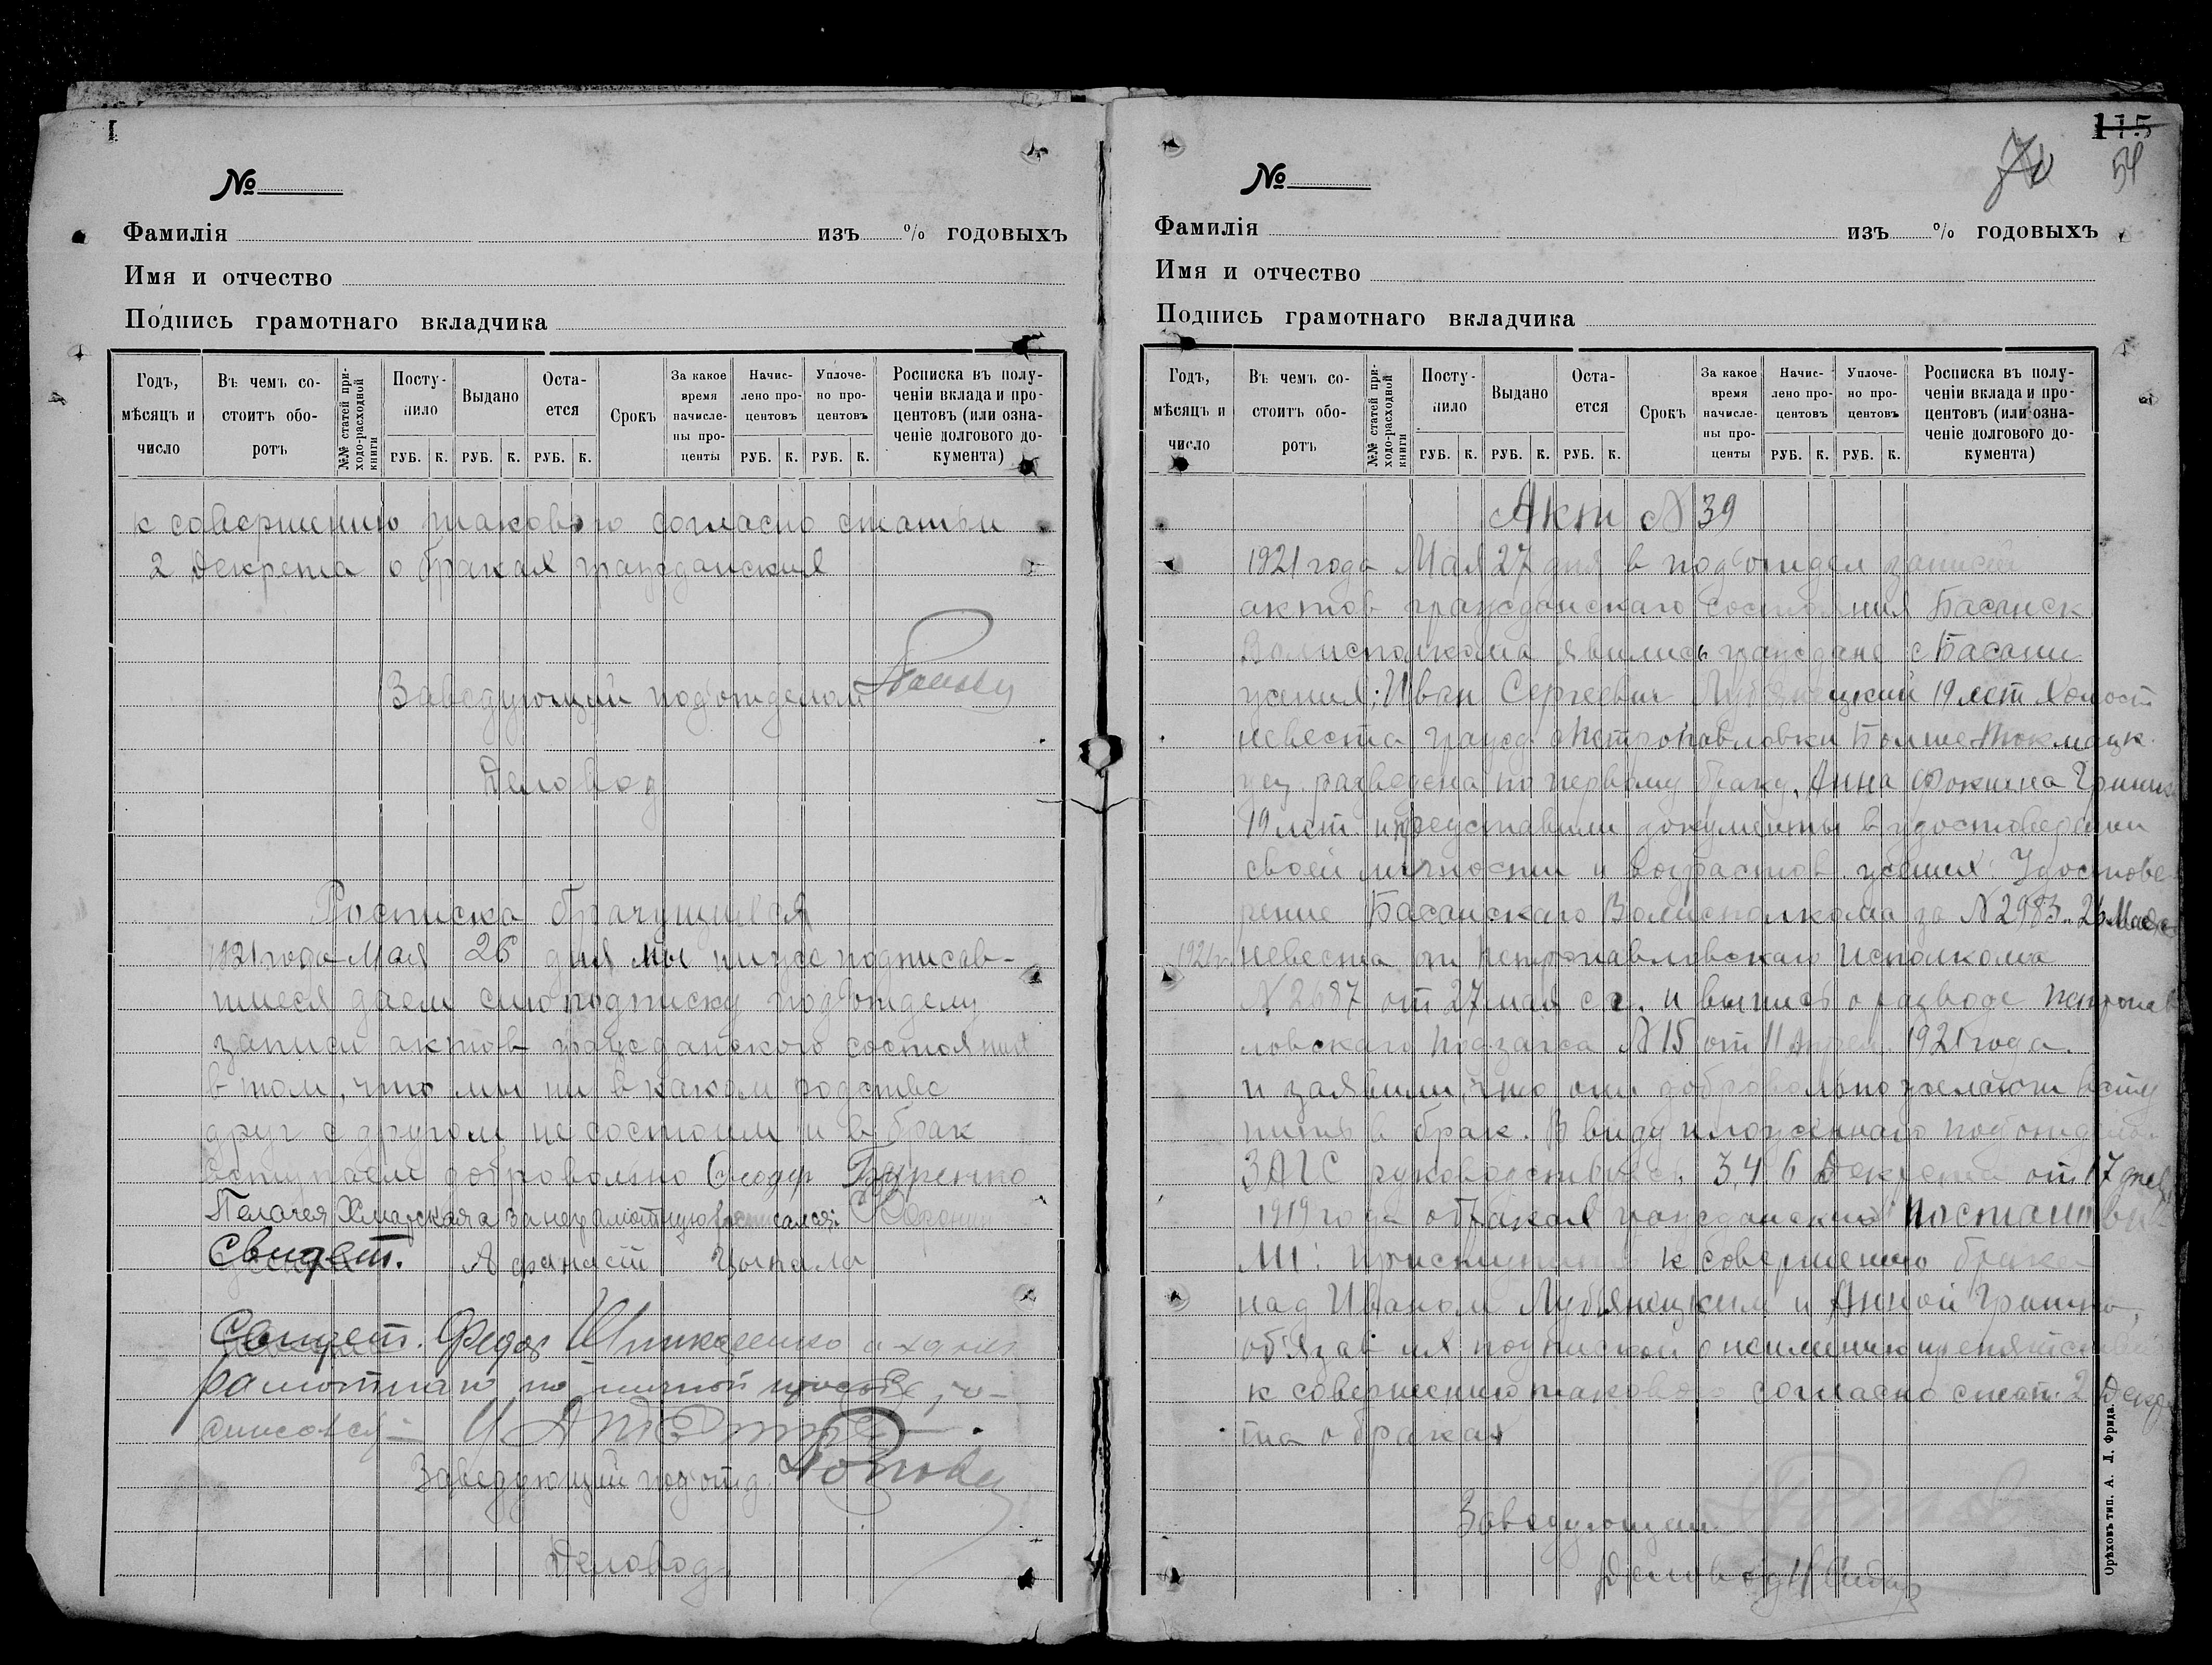 I
№
Фамилія изъ % годовыхъ
Имя и отчество
Подпись грамотнаго вкладчика
Годъ, мѣсяцъ и число
Въ чемъ состоитъ оборотъ
№№ статей приходо-расходной книги
Поступило РУБ. К.
Выдано РУБ. К.
Остается РУБ. К.
Срокъ
За какое время начислены проценты
Начислено процентовъ РУБ. К.
Уплочено процентовъ РУБ. К.
Росписка въ полученіи вклада и процентовъ (или означеніе долгового документа)
к совершению таковаго согласно статьи
2 Декрета о браках гражданских
Заведующий подотделом
Деловод
Росписка брачущихся
1921 года Мая 26 дня мы ниже подписав-
шиеся даем сию подписку подотделу
записи актов гражданского состояния
в том, что мы ни в каком родстве
друг с другом не состоим и в брак
вступаем добровольно Феодор Буренко
Пелагея Хмарская а за неграмотную росписался:
Свидет. Афанасий Цыпала
Свидет. Федор
рамотнаго по личной просьбе
Заведующий подотд. Попов
Деловод
115
70 54
№
Фамилія изъ % годовыхъ
Имя и отчество
Подпись грамотнаго вкладчика
Годъ, мѣсяцъ и число
Въ чемъ состоитъ оборотъ
№№ статей приходо-расходной книги
Поступило РУБ. К.
Выдано РУБ. К.
Остается РУБ. К.
Срокъ
За какое время начислены проценты
Начислено процентовъ РУБ. К.
Уплочено процентовъ РУБ. К.
Росписка въ полученіи вклада и процентовъ (или означеніе долгового документа)
Акт N 39
1921 года Мая 27 дня в подотдел записей
актов гражданскаго состояния Басанск
Волисполкома явились граждане с Басани
жених: Иван Сергеевич Лубянецкий 19 лет Холост
невеста гражд. с Петропавловки Больше Токмацк.
уез. разведена по первому браку, Анна Фокина Гришк
19 лет и представили документы в удостоверении
своей личности и возрастов жених: Удостове-
рение Басанскаго Волисполкома за N 2983 26 Мая
1921 г. невеста от Петропавловскаго исполкома
N 2687 от 27 мая с г. и выпись о разводе Петропав
ловскаго подзагса N 15 от 11 Апрел. 1921 года.
и заявили, что они добровольно желают всту
пить в брак. В виду изложеннаго подотдел
ЗАГС руководствуясь 3, 4 6 Декрета от 17 дек
1919 года о браках гражданских постанови
ли: приступить к совершению брака
над Иваном Лубянецким и Анной Гришко,
обязав их подпиской о неимении препятствий
к совершению таковаго согласно стат. 2 Декре
та о браках
Заведующий
Деловод
Орѣховъ тип. А. Л. Фрида.